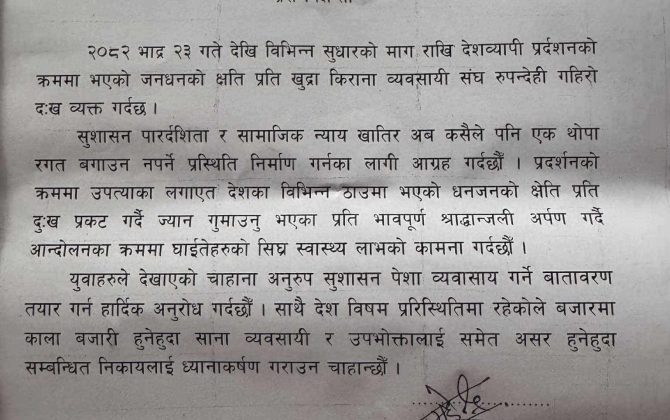 २०८२ भाद्र २३ गते देखि विभिन्न सुधारको माग राखि देशव्यापी प्रर्दशनको
क्रममा भएको जनधनको क्षति प्रति खुद्रा किराना व्यवसायी संघ रुपन्देही गहिरो
दुःख व्यक्त गर्दछ ।
सुशासन पारर्दशिता र सामाजिक न्याय खातिर अब कसैले पनि एक थोपा
रगत बगाउन नपर्ने प्रस्थिति निर्माण गर्नका लागी आग्रह गर्दछौं । प्रदर्शनको
क्रममा उपत्याका लगाएत देशका विभिन्न ठाउमा भएको धनजनको क्षेति प्रति
दुःख प्रकट गर्दै ज्यान गुमाउनु भएका प्रति भावपूर्ण श्राद्धान्जली अर्पण गर्दै
आन्दोलनका क्रममा घाईतेहरुको सिघ्र स्वास्थ्य लाभको कामना गर्दछौँ ।
युवाहरुले देखाएको चाहाना अनुरुप सुशासन पेशा व्यवासाय गर्ने बातावरण
तयार गर्न हार्दिक अनुरोध गर्दछौँ । साथै देश विषम प्ररिस्थितिमा रहेकोले बजारमा
काला बजारी हुनेहुदा साना व्यवसायी र उपभोक्तालाई समेत असर हुनेहुदा
सम्बन्धित निकायलाई ध्यानाकर्षण गराउन चाहान्छौँ ।